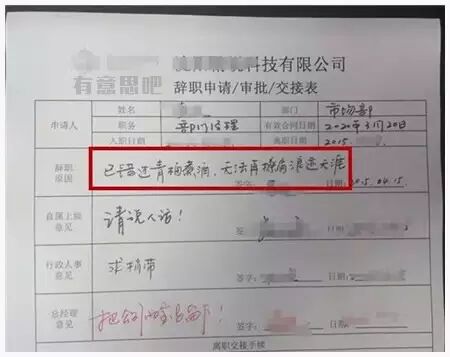 有意思吧
科技有限公司
辞职申请/审批/交接表
申请人
姓名
部门
市场部
职务
部门经理
有效合同日期
2020年3月20日
入职日期
离职日期
2015.
辞职原因
已错过青梅煮酒,无法再携病浪迹天涯
签
日期:2015.04.15
直属上级意见
请说人话!
签
日期
行政人事意见
求携带
签字:
日期:
总经理意见
把公司
留下!
签字:
日期:
离职交接手续